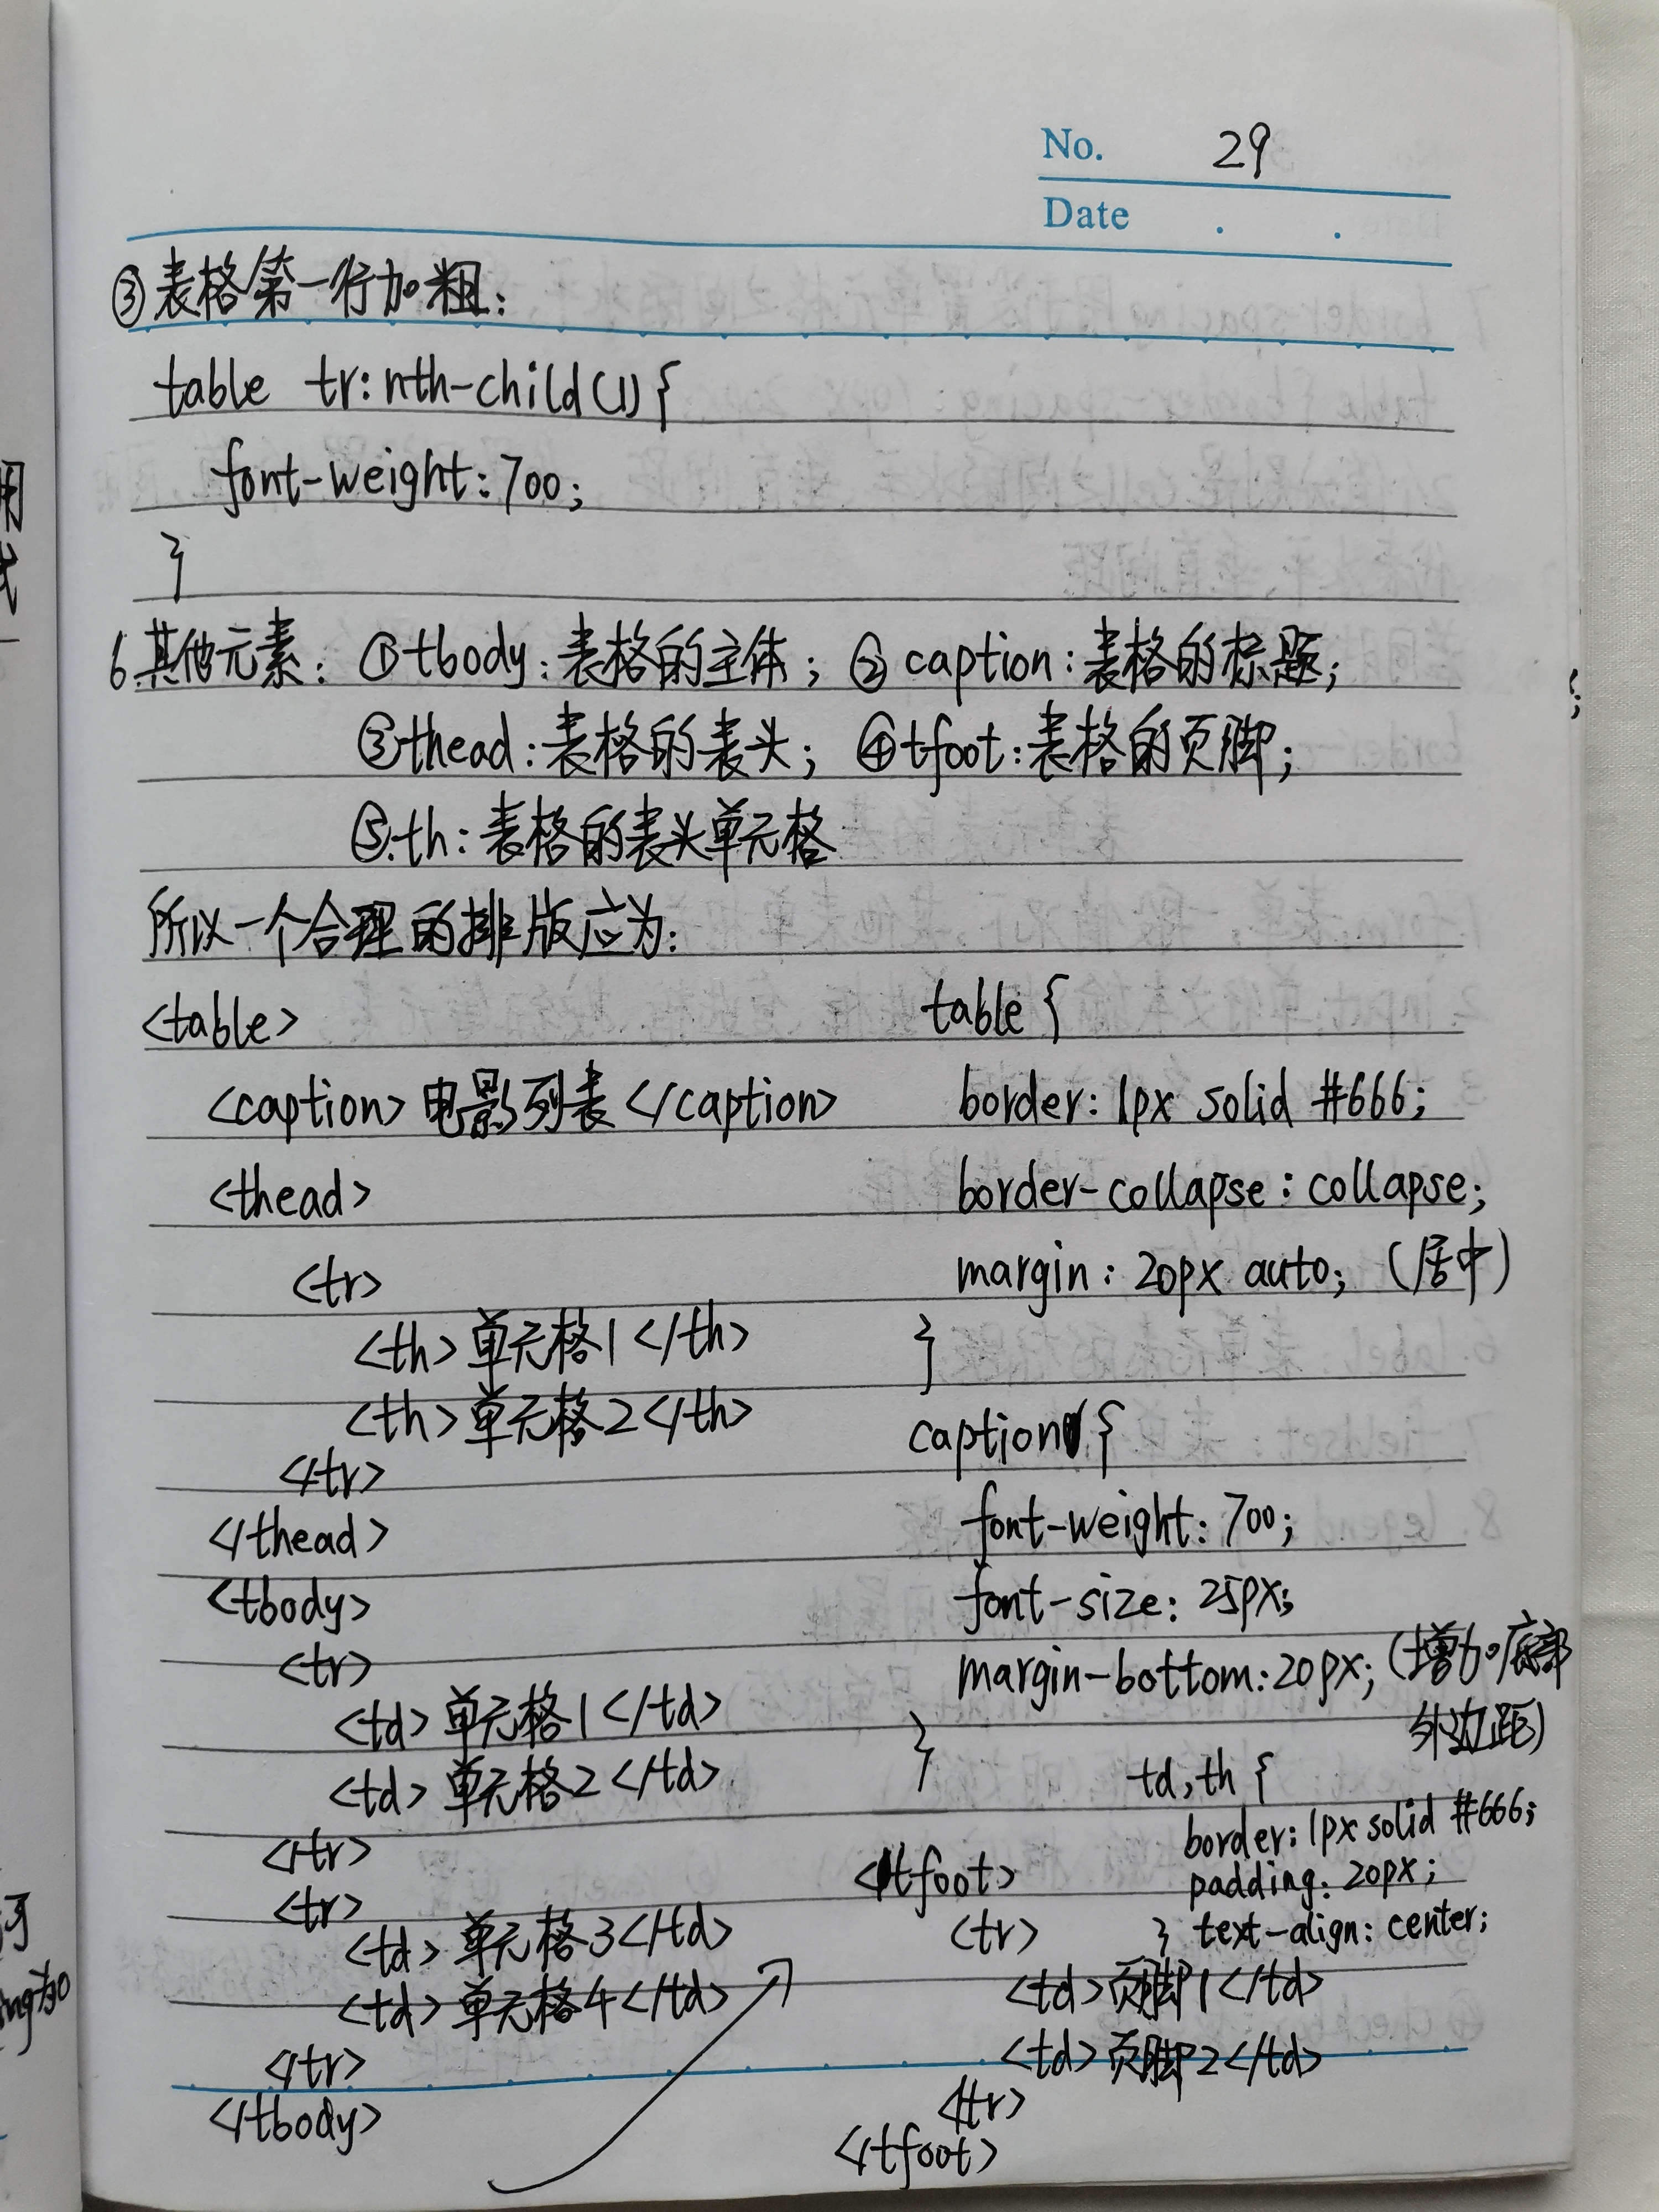 No. 29
Date . .
③表格第一行加粗:
table tr:nth-child(1){
font-weight:700;
}
6.其他元素: ①tbody:表格的主体; ②caption:表格的标题;
③thead:表格的表头; ④tfoot:表格的页脚;
⑤th:表格的表头单元格
所以一个合理的排版应为:
<table>
<caption>电影列表</caption>
<thead>
<tr>
<th>单元格1</th>
<th>单元格2</th>
</tr>
</thead>
<tbody>
<tr>
<td>单元格1</td>
<td>单元格2</td>
</tr>
<tr>
<td>单元格3</td>
<td>单元格4</td>
</tr>
</tbody>
<tfoot>
<tr>
<td>页脚1</td>
<td>页脚2</td>
</tr>
</tfoot>
table {
border: 1px solid #666;
border-collapse: collapse;
margin: 20px auto; (居中)
}
caption {
font-weight: 700;
font-size: 25px;
margin-bottom: 20px; (增加底部
外边距)
}
td,th {
border: 1px solid #666;
padding: 20px;
} text-align: center;